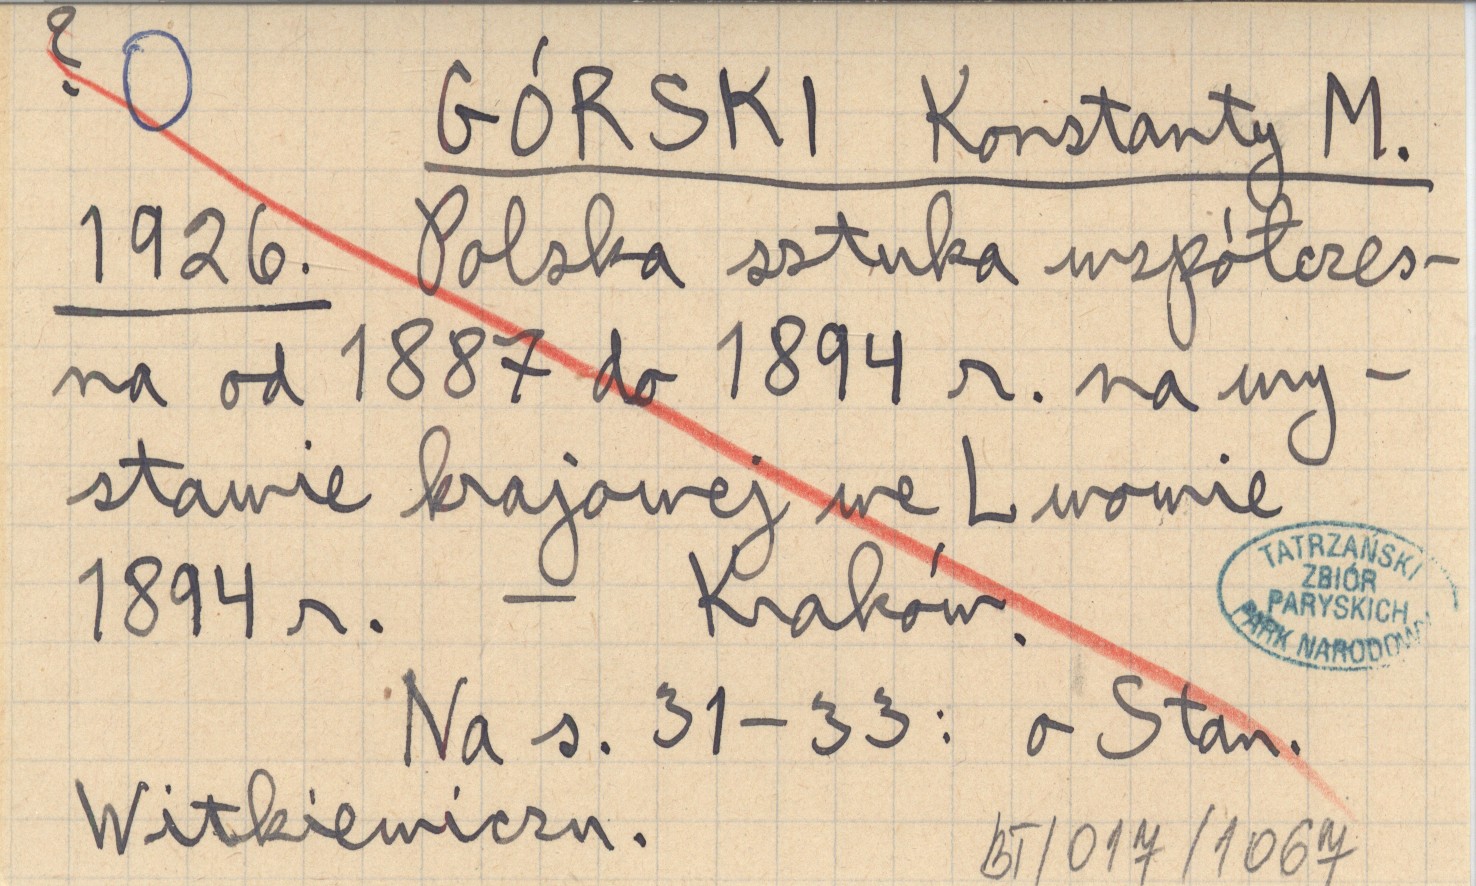 ?
GÓRSKI Konstanty M.
1926. Polska sztuka współczes-
na od 1887 do 1894 r. na wy-
stawie krajowej we Lwowie
1894 r. — Kraków.
TATRZAŃSKI
ZBIÓR
PARYSKICH
PARK NARODOWY
Na s. 31-33: o Stan.
Witkiewiczu.
BT/017/1067